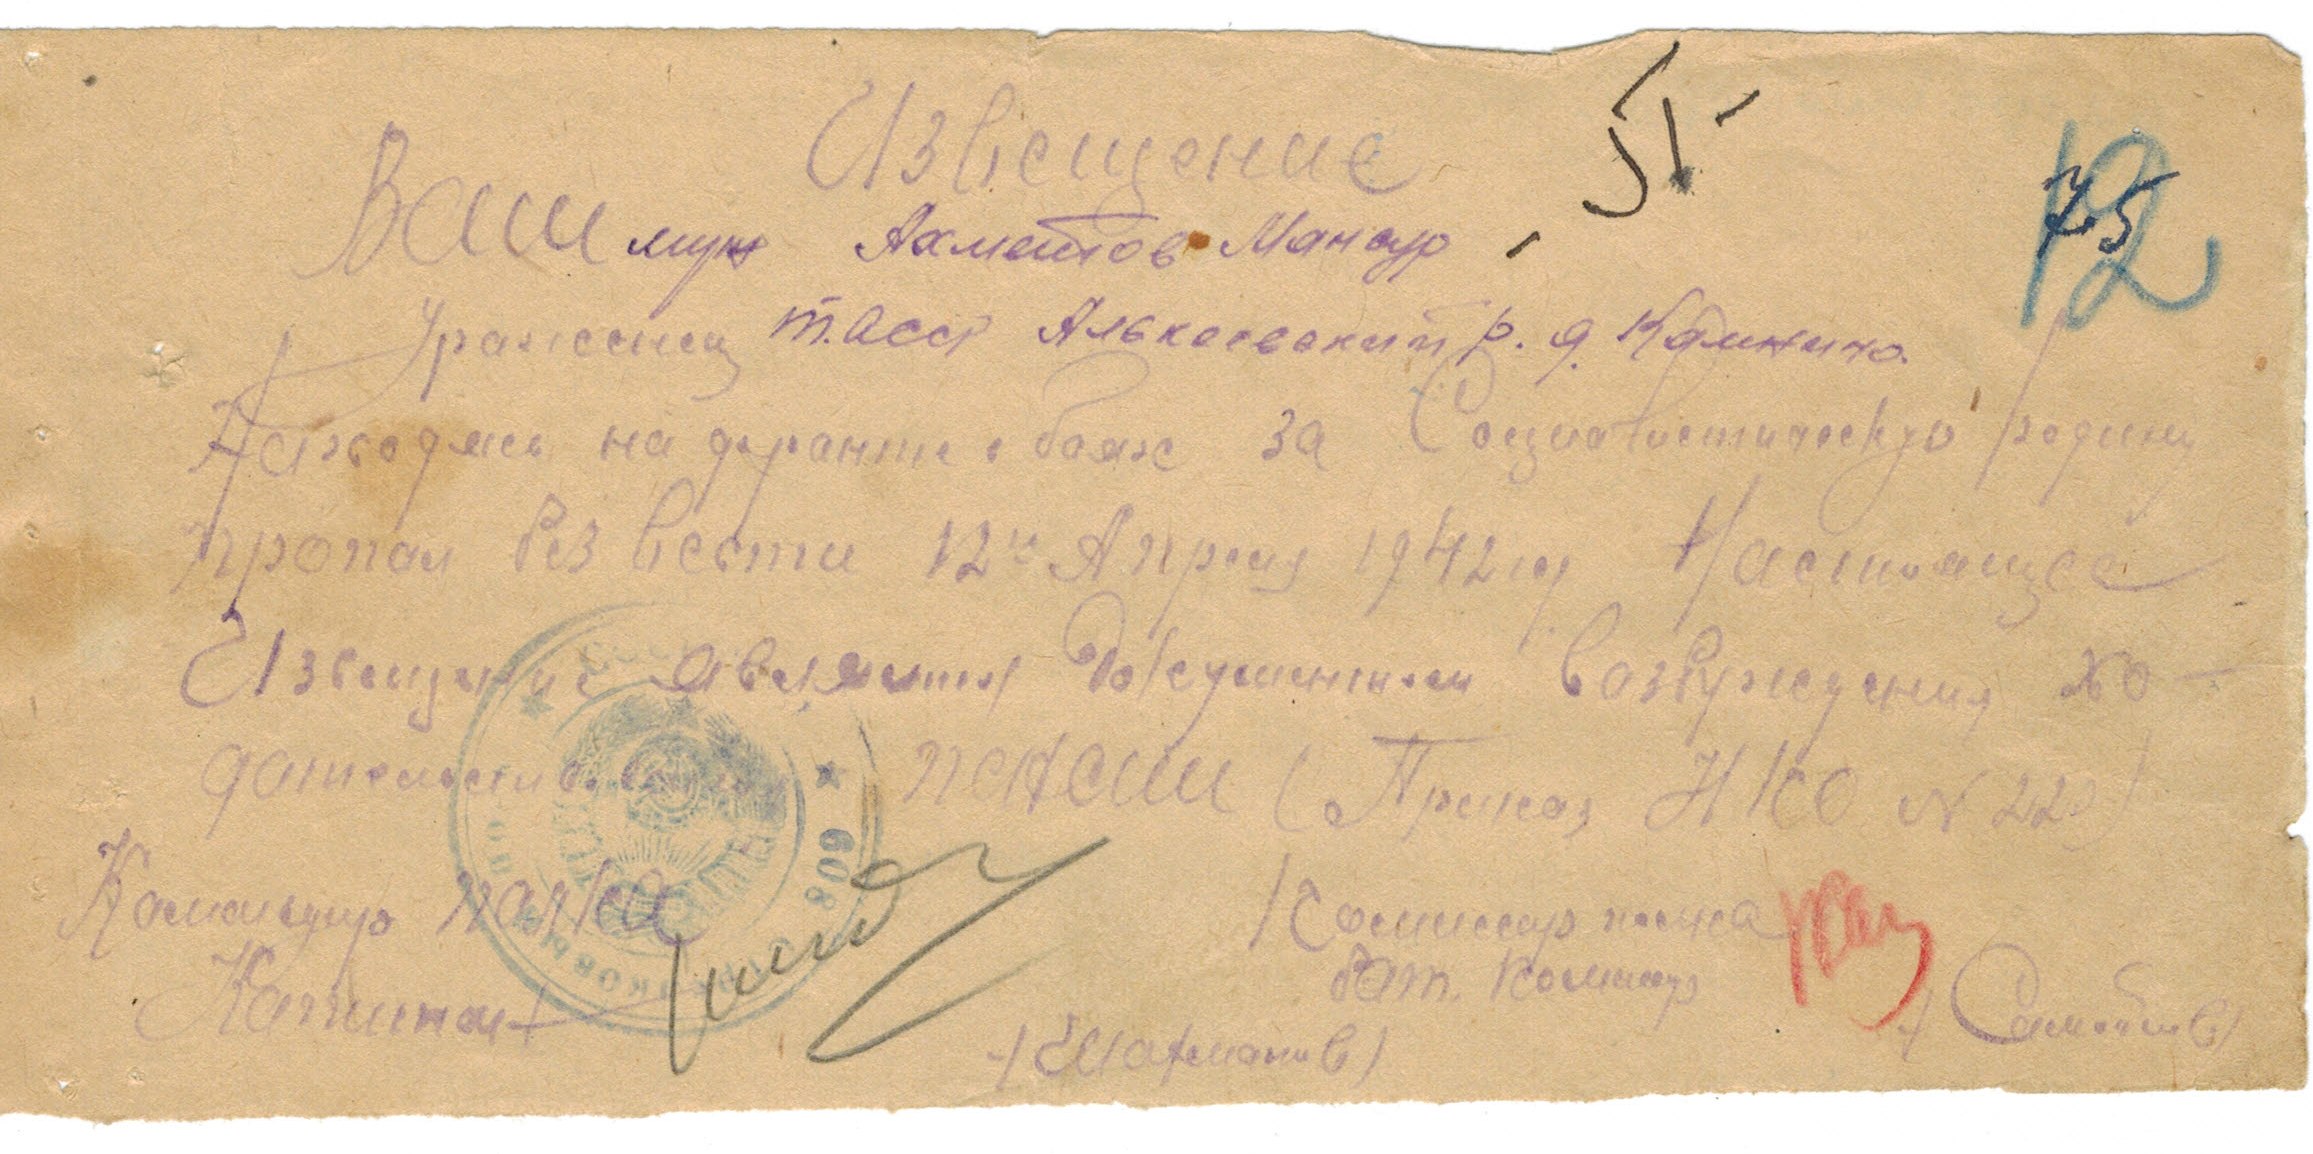 Извещение
51
12
75
Ваш муж Ахметов Мансур
Уроженец Т.АССР Алькеевский р. д. Калинино.
Находясь на фронте в боях за Социалистическую родину
пропал без вести 12го Апреля 1942 год Настоящее
Извещение является документом возбуждения хо-
датайства пенсии (Приказ НКО N 220)
Командир полка
Капитан
/Шахманов/
Комиссар полка
бат. комиссар
608